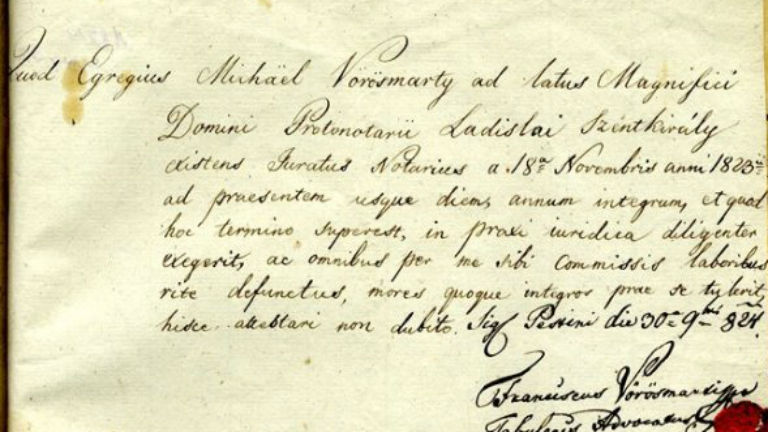 Quod Egregius Michäel Vörösmarty ad latus Magnifici
Domini Protonotarii Ladislai Széntkirály
existens Juratus Notarius a. 18ª Novembris anni 1823ii
ad praesentem usque diem, annum integrum, et quod
hoc termino superest, in praxi iuridica diligenter
exegerit, ac omnibus per me sibi commissis laboribus
rite defunctus, mores quoque integros prae se tulerit,
hisce attestari non dubito. Sig Pestini die 30ª 9bris 824.
Franciscus Vörösmarty
Tabularius Advocatus